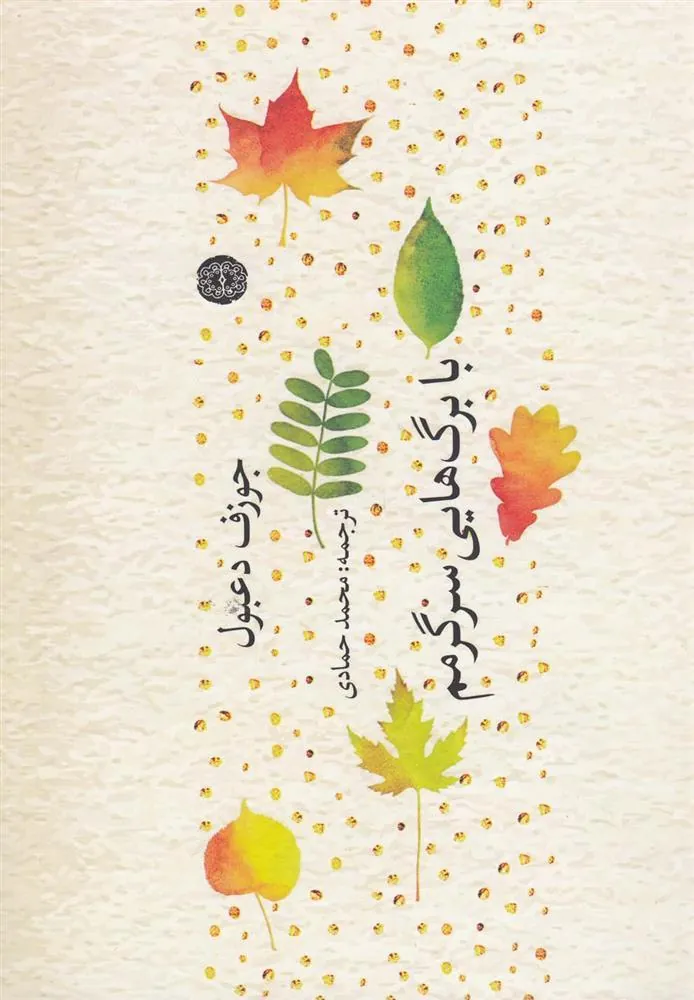 با برگ‌هایی سرگرمم
ترجمه: محمد حمادی
جوزف دعبول